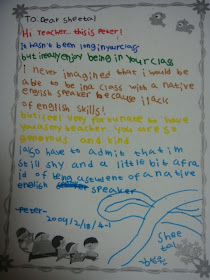 To. Dear sheetal
Hi Teacher.. this is Peter!
It hasn't been long in your class
but i really enjoy being in your class
i never imagined that i would be
able to be in a class with a native
english speaker because i lack
of english skills!
but i feel very fortunate to have
you as my teacher. you are so
generous and kind
i also have to admit that i'm
still shy and a little bit afra
id of being a student of a native
english speaker
-Peter-
2009/2/18/4-1
Shee
tal